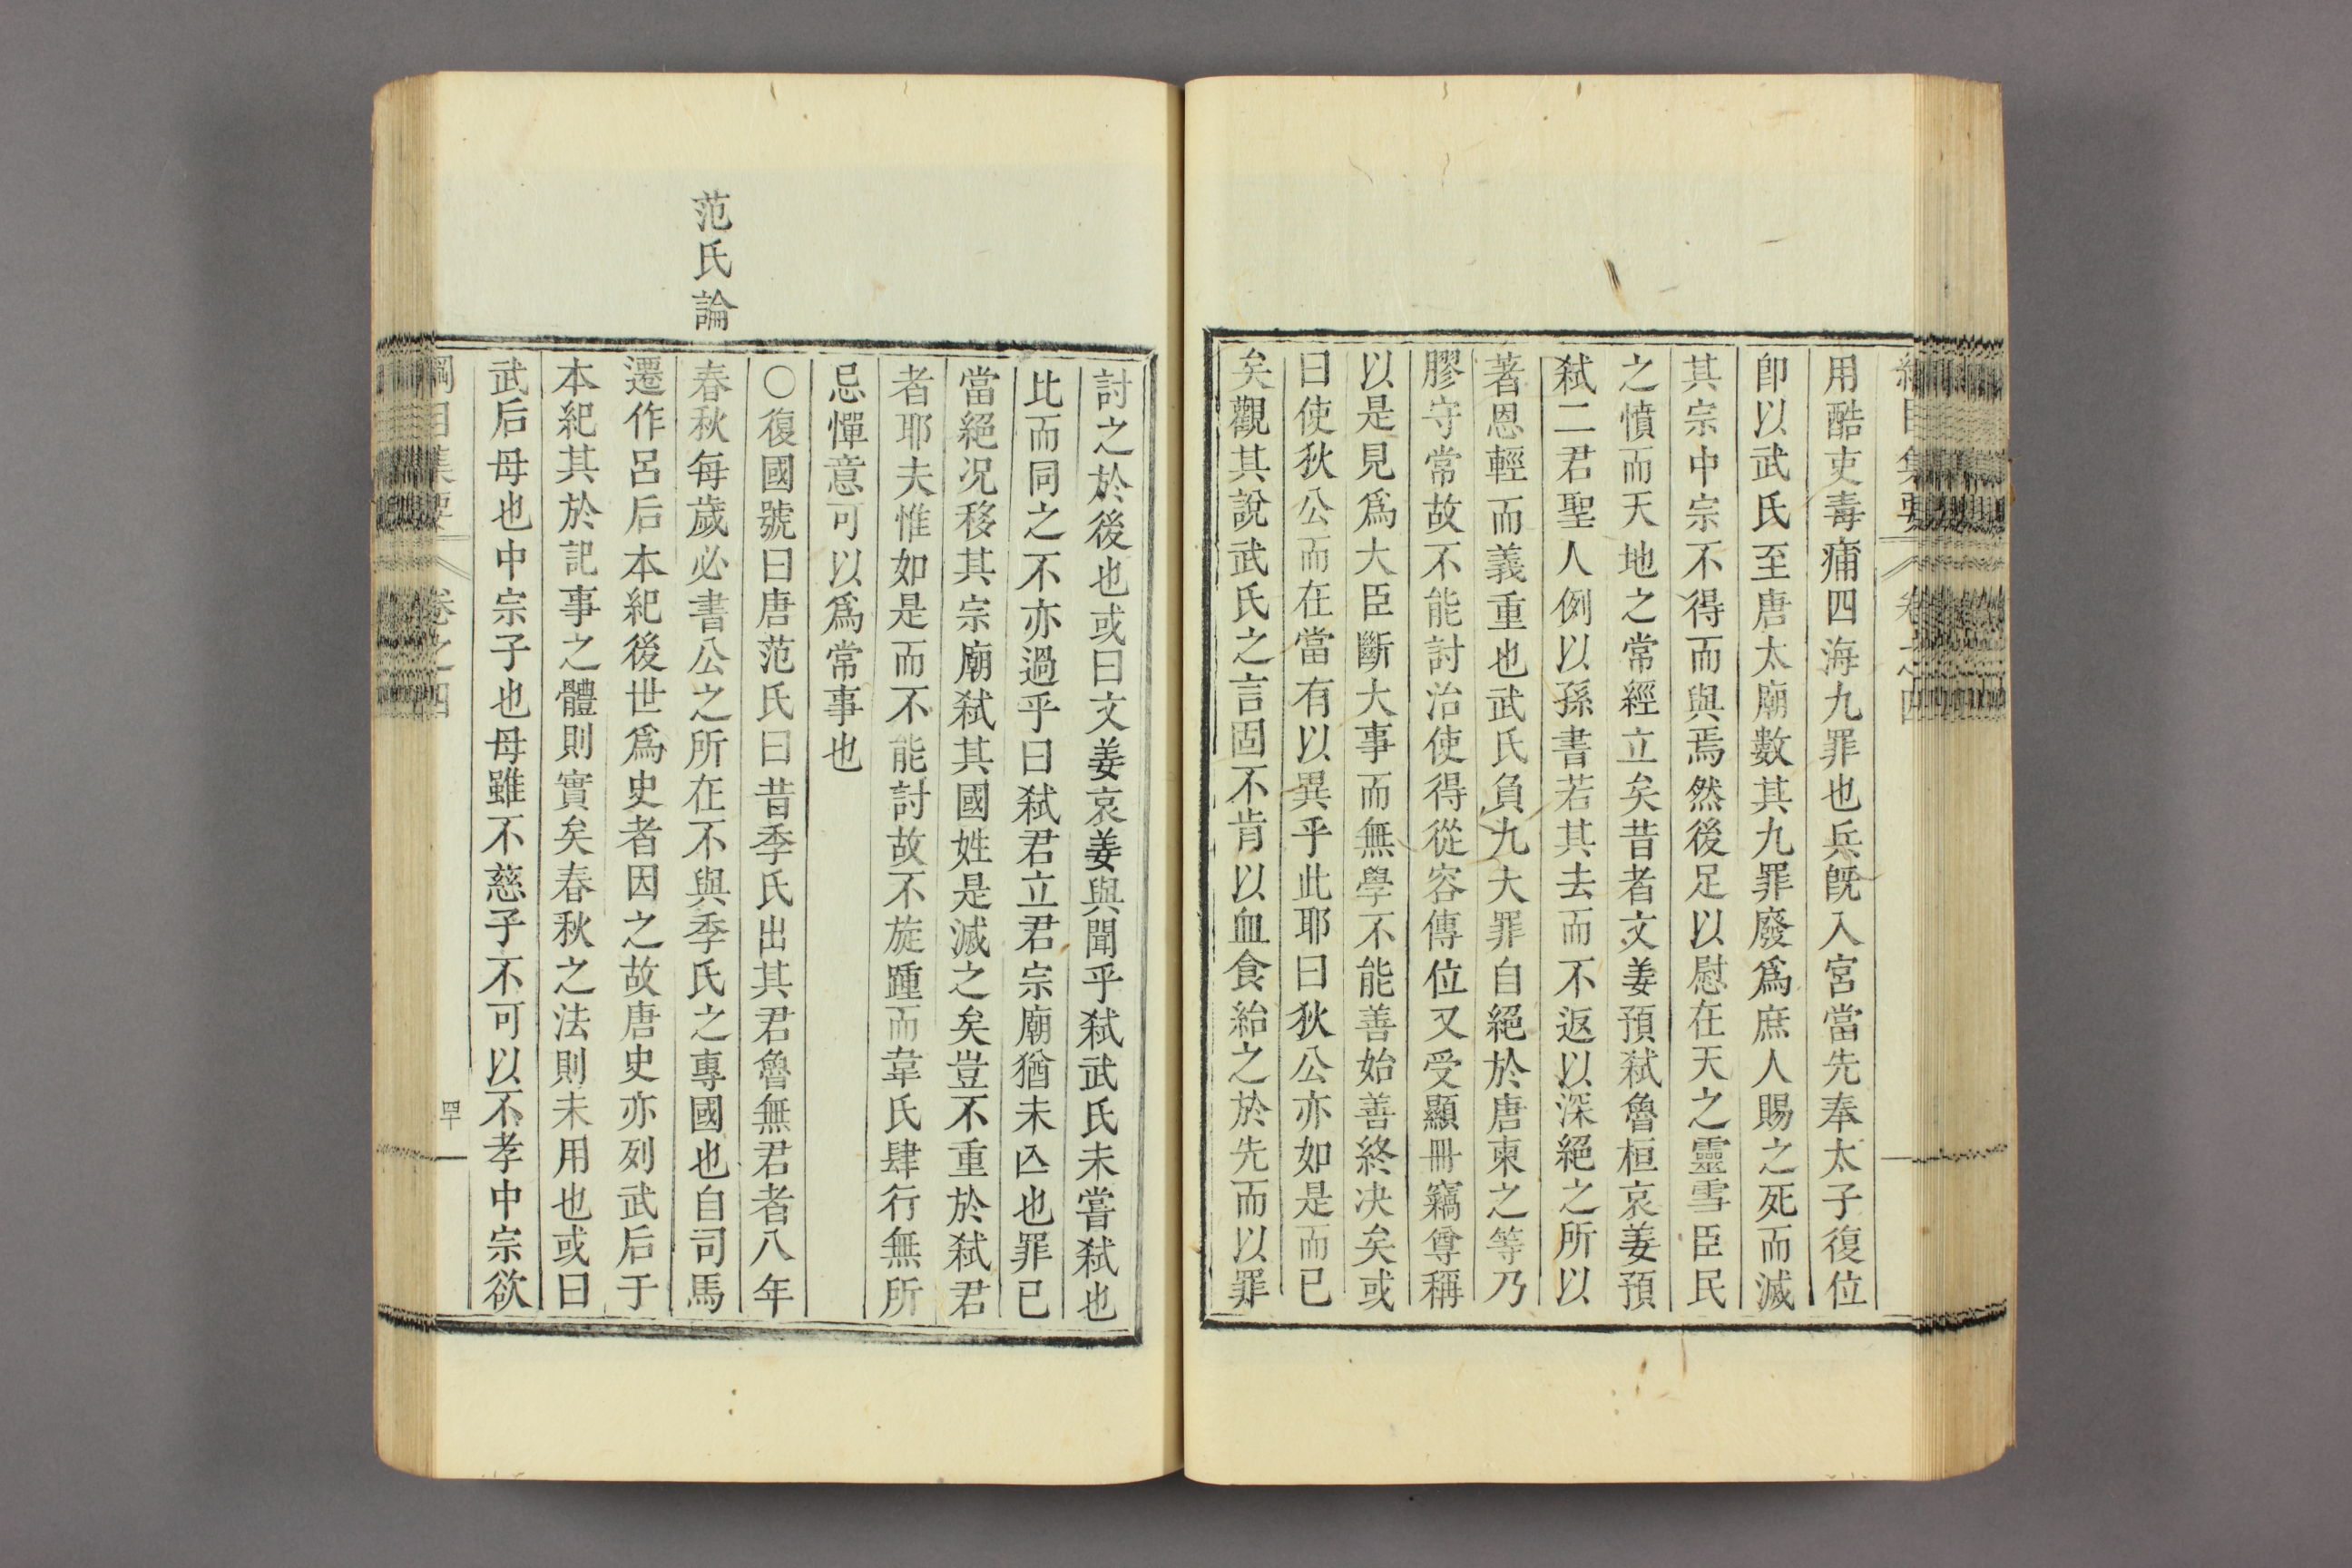 用酷吏毒痡四海九罪也兵旣入宮當先奉太子復位
卽以武氏至唐太廟數其九罪廢爲庶人賜之死而滅
其宗中宗不得而與焉然後足以慰在天之靈雪臣民
之憤而天地之常經立矣昔者文姜預弑魯桓哀姜預
弑二君聖人例以孫書若其去而不返以深絕之所以
著恩輕而義重也武氏負九大罪自絕於唐柬之等乃
膠守常故不能討治使得從容傳位又受顯冊竊尊稱
以是見爲大臣斷大事而無學不能善始善終決矣或
曰使狄公而在當有以異乎此耶曰狄公亦如是而已
矣觀其說武氏之言固不肯以血食紿之於先而以罪
討之於後也或曰文姜哀姜與聞乎弑武氏未嘗弑也
比而同之不亦過乎曰弑君立君宗廟猶未亾也罪已
當絕况移其宗廟弑其國姓是滅之矣豈不重於弑君
者耶夫惟如是而不能討故不旋踵而韋氏肆行無所
忌憚意可以爲常事也
〇復國號曰唐范氏曰昔季氏出其君魯無君者八年
范氏論
春秋每歲必書公之所在不與季氏之專國也自司馬
遷作呂后本紀後世爲史者因之故唐史亦列武后于
本紀其於記事之體則實矣春秋之法則未用也或曰
武后母也中宗子也母雖不慈子不可以不孝中宗欲
綱目集要 卷之四 四十